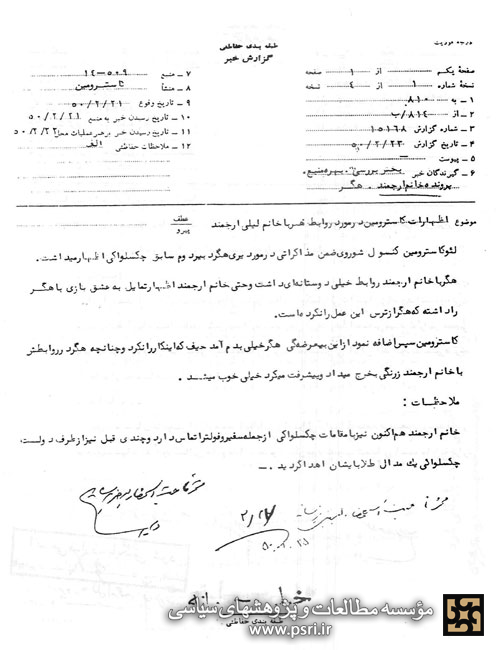 درجه فوریت
طبقه بندی حفاظتی
گزارش خبر
صفحهٔ یکم از ۱ صفحه
نسخهٔ شماره ۱ از ۴ نسخه
۱ ـ به ۸۱۰
۲ ـ از ۸۱۴/ب
۳ ـ شماره گزارش ۱۵۱۶۸
۴ ـ تاریخ گزارش ۵۰/۲/۲۳
۵ ـ پیوست ـ
۶ ـ گیرندگان خبر بخش بررسی . بهره منبع .
پرونده خانم ارجمند . هگر
۷ ـ منبع ۵۰۹ــ۱۴
۸ ـ منشأ کاسترومین
۹ ـ تاریخ وقوع ۵۰/۲/۲۱
۱۰ ـ تاریخ رسیدن خبر به منبع ۵۰/۲/۲۱
۱۱ ـ تاریخ رسیدن خبر برهبر عملیات محل ۵۰/۲/۲۲
۱۲ ـ ملاحظات حفاظتی الف
موضوع اظهارات کاسترومین در مورد روابط هگر با خانم لیلی ارجمند عطف
پیرو
لئو کاسترومین کنسول شوروی ضمن مذاکراتی در مورد یری هگر دبیر دوم سابق چکسلواکی اظهار میداشت .
هگر با خانم ارجمند روابط خیلی دوستانه‌ای داشت و حتی خانم ارجمند اظهار تمایل به عشق بازی با هگر
را داشته که هگر از ترس این عمل را نکرده است .
کاسترومین سپس اضافه نمود از این بیعرضگی هگر خیلی بدم آمد حیف که اینکار را نکرد و چنانچه هگر در روابطش
با خانم ارجمند زرنگی بخرج میداد و پیشرفت میکرد خیلی خوب میشد .
ملاحظات :
خانم ارجمند هم اکنون نیز با مقامات چکسلواکی از جمله سفیر و فولترا تماس دارد و چندی قبل نیز از طرف دولت
چکسلواکی یک مدال طلا بایشان اهدا گردید . ــ
۲/۲۷
۵۰،۲،۲۵
طبقه بندی حفاظتی
مؤسسه مطالعات و پژوهشهای سیاسی
www.psri.ir